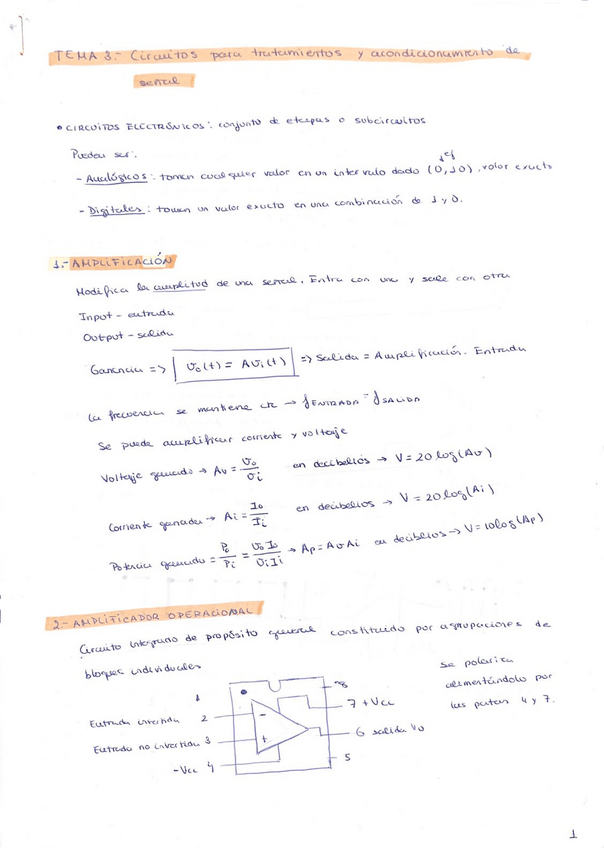 TEMA 3.- Circuitos para tratamientos y acondicionamiento de
señal
• CIRCUITOS ELECTRÓNICOS: conjunto de etapas o subcircuitos
Pueden ser:
ej
- Analógicos: toman cualquier valor en un intervalo dado (0,10), valor exacto
- Digitales: toman un valor exacto en una combinación de 1 y 0.
1.- AMPLIFICACIÓN
Modifica la amplitud de una señal. Entra con una y sale con otra
Input - entrada
Output - salida
Ganancia => Vo(t) = AVi(t) => Salida = Amplificación. Entrada
La frecuencia se mantiene cte → fENTRADA = fSALIDA
Se puede amplificar corriente y voltaje
Voltaje ganado → Av = Vo/Vi en decibelios → V = 20 log(Av)
Corriente ganada → Ai = Io/Ii en decibelios → V = 20 log(Ai)
Potencia ganada = Po/Pi = Vo Io/Vi Ii → Ap = Av Ai en decibelios → V = 10 log(Ap)
2.- AMPLIFICADOR OPERACIONAL
Circuito integrado de propósito general constituido por agrupaciones de
bloques individuales
Se polariza
alimentándolo por
las patas 4 y 7.
1
8
7 +Vcc
Entrada invertida 2
-
6 salida Vo
Entrada no invertida 3
+
-Vcc 4
5
1